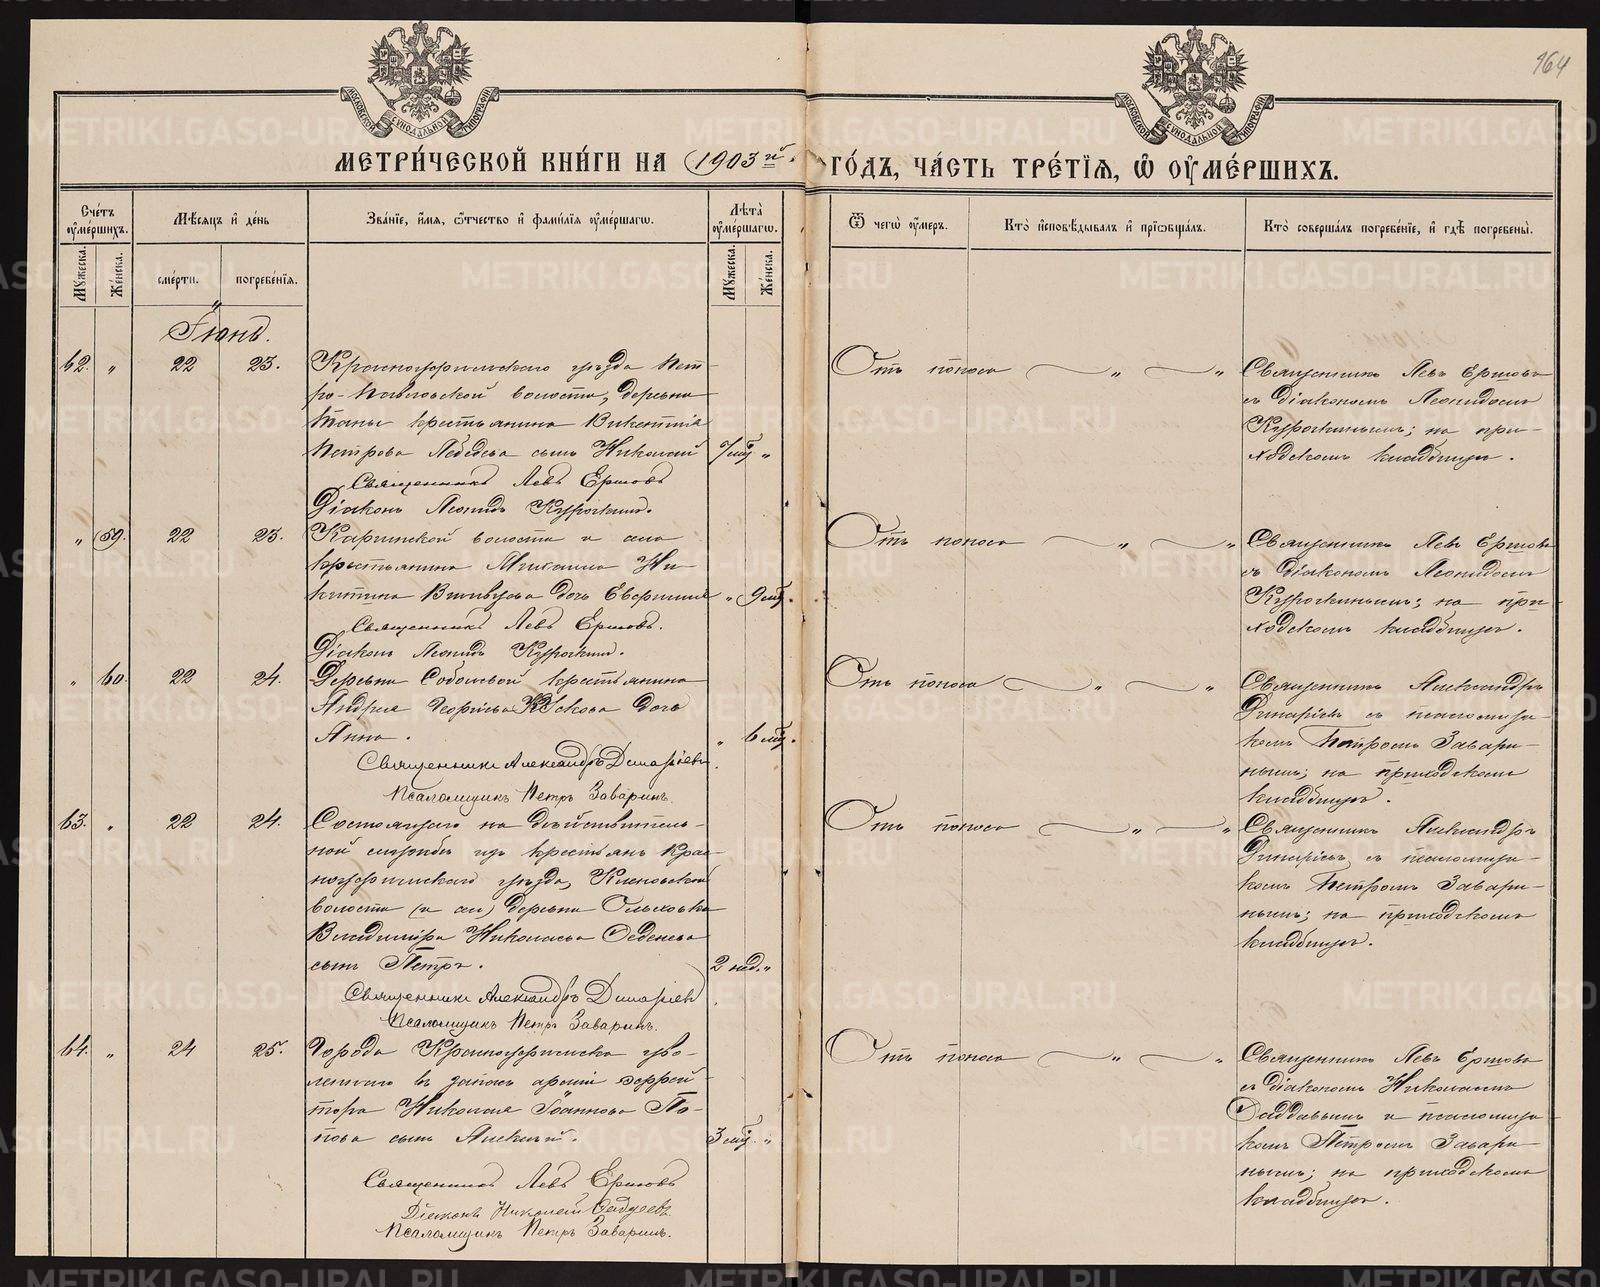 164
МОСКОВСКОЙ СѴНОДАЛЬНОЙ ТИПОГРАФІИ
МОСКОВСКОЙ СѴНОДАЛЬНОЙ ТИПОГРАФІИ
МЕТРИ́ЧЕСКОЙ КНИ́ГИ НА 1903й ГО́ДЪ, ЧА́СТЬ ТРЕ́ТІЯ, Ѡ ОУМЕ́РШИХЪ.
Сче́тъ оуме́ршихъ.
Мꙋжеска.
Же́нска.
Мѣсяцъ и де́нь
сме́рти.
погребе́нія.
Зва́ніе, и́мя, ѻ́тчество и фами́лія оуме́ршагѡ.
Лѣта̀ оуме́ршагѡ.
Мꙋжеска.
Же́нска.
Ѿ чегѡ̀ оу́меръ.
Кто̀ исповѣ́дывалъ и пріѡбща́лъ.
Кто̀ соверша́лъ погребе́ніе, и гдѣ̀ погребены̀.
Іюнь.
62. " 22 23.
Красноуфимскаго уѣзда Пет-
ро-Павловской волости, деревни
Таны крестьянина Викентія
Петрова Лебедева сынъ Николай
9 мц. "
Священникъ Левъ Ершовъ
Діаконъ Леонидъ Курочкинъ.
Отъ поноса " "
Священникъ Левъ Ершовъ
съ діакономъ Леонидомъ
Курочкинымъ; на при-
ходскомъ кладбищѣ.
" 59. 22 23.
Каринской волости и села
крестьянина Михаила Ни-
китина дочь
" 9 мц.
Священникъ Левъ Ершовъ.
Діаконъ Леонидъ Курочкинъ.
Отъ поноса " "
Священникъ Левъ Ершовъ
съ діакономъ Леонидомъ
Курочкинымъ; на при-
ходскомъ кладбищѣ.
" 60. 22 24.
Деревни крестьянина
Андрея Георгіева дочь
Анна.
" 6 мц.
Священникъ Александръ Динаріевъ
Псаломщикъ Петръ Заваринъ.
Отъ поноса " "
Священникъ Александръ
Динаріевъ съ псаломщи-
комъ Петромъ Завари-
нымъ; на приходскомъ
кладбищѣ.
63. " 22 24.
Состоящаго на дѣйствитель-
ной службѣ изъ крестьянъ Крас-
ноуфимскаго уѣзда, Кленовской
волости (и села) деревни Ольховки
Владиміра Николаева Феденева
сынъ Петръ.
2 нед. "
Священникъ Александръ Динаріевъ
Псаломщикъ Петръ Заваринъ.
Отъ поноса " "
Священникъ Александръ
Динаріевъ съ псаломщи-
комъ Петромъ Завари-
нымъ; на приходскомъ
кладбищѣ.
64. " 24 25.
Города Красноуфимска уво-
леннаго въ запасъ арміи ефрей-
тора Николая Іоаннова По-
пова сынъ Алексѣй.
3 мц. "
Священникъ Левъ Ершовъ
Діаконъ Николай
Псаломщикъ Петръ Заваринъ.
Отъ поноса " "
Священникъ Левъ Ершовъ
съ діакономъ Николаемъ
и псаломщи-
комъ Петромъ Завари-
нымъ; на приходскомъ
кладбищѣ.
METRIKI.GASO-URAL.RU